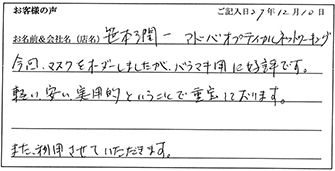 お客様の声 ご記入日27年12月10日
お名前&会社名(店名) 笹本 一 アドーバオプティカルネットワーキング
今回、マスクをオーダーしましたが、バラマキ用に好評です。
軽い、安い、実用的ということで重宝しております。
また、利用させていただきます。